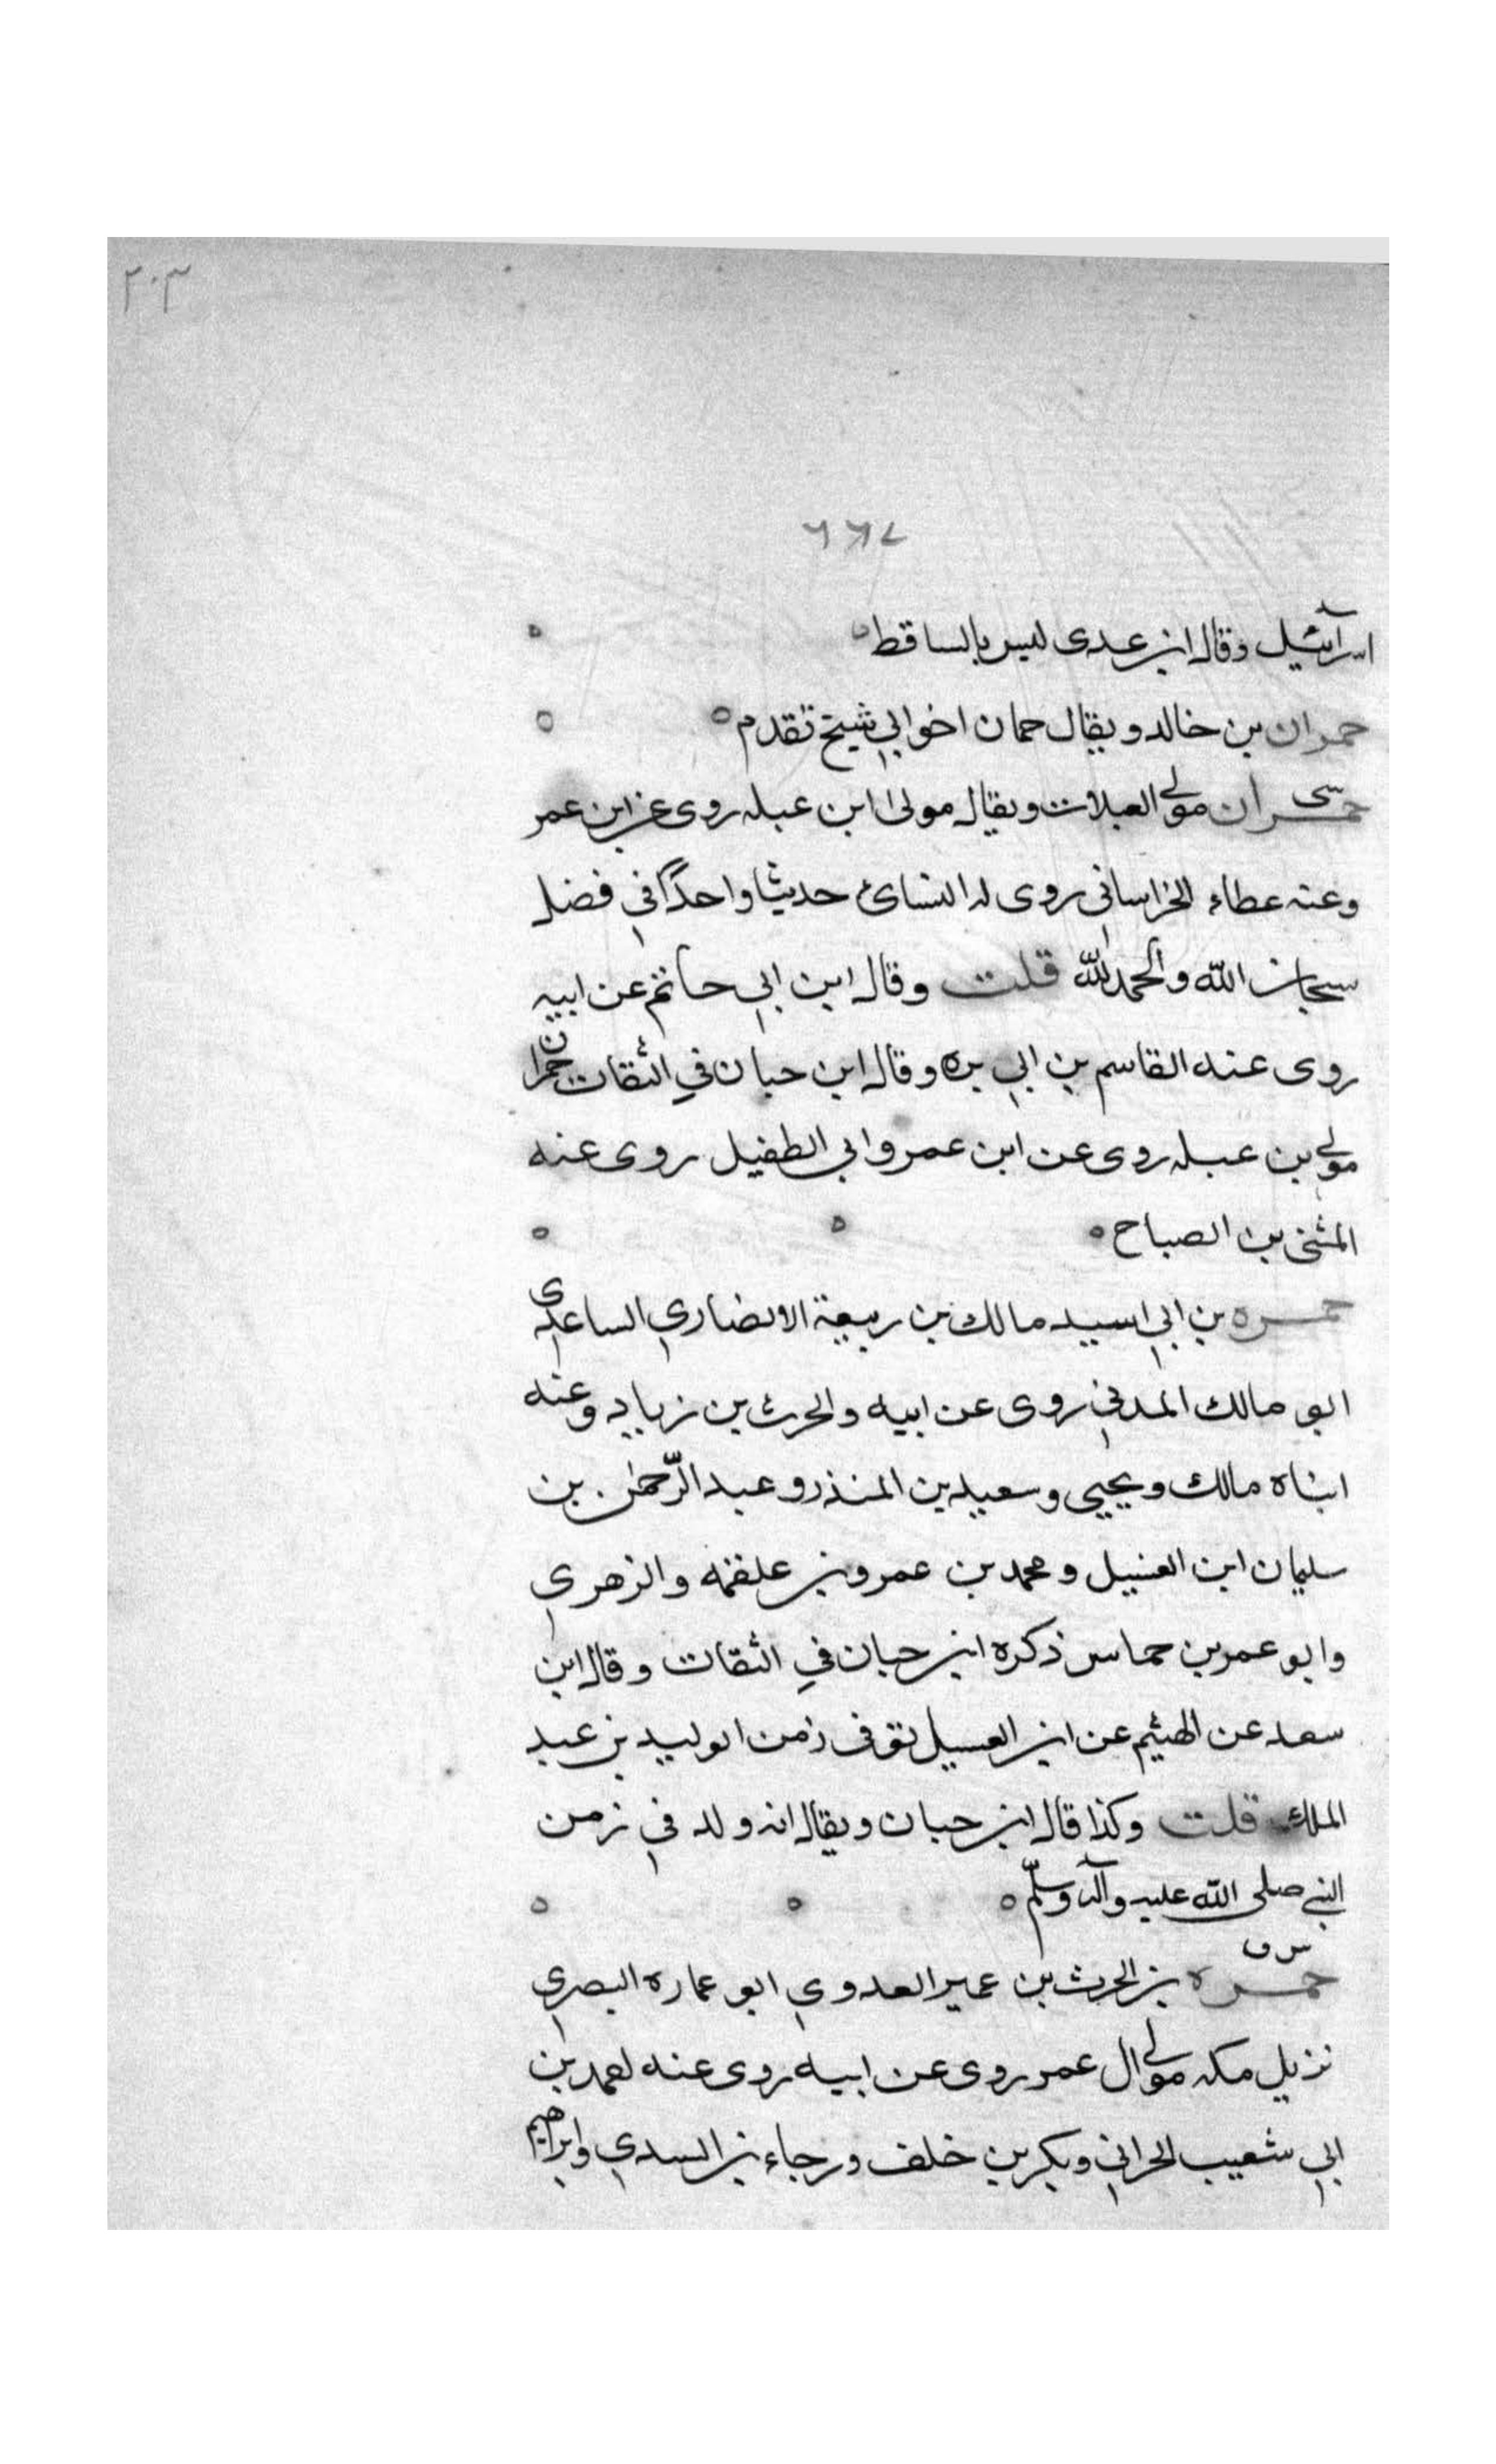 ٢٠٣
٦٦٧
اسرآئيل وقال ابن عدى ليس بالساقط
حمران بن خالد ويقال حمان اخو ابي شيخ تقدم
حمران مولى العبلات ويقال مولى ابن عبله روى عن ابن عمر
وعنه عطاء الخراساني روى له النسائ حديثا واحدًا في فضل
سبحان الله والحمد لله قلت وقال ابن ابي حاتم عن ابيه
روى عنه القاسم بن ابي بره وقال ابن حبان في الثقات حمران
مولى بن عبله روى عن ابن عمر وابي الطفيل روى عنه
المثنى بن الصباح
حمزه بن ابي اسيد مالك بن ربيعة الانصاري الساعدى
ابو مالك المدني روى عن ابيه والحرث بن زياد وعنه
ابناه مالك ويحيى وسعيد بن المنذر وعبد الرّحمن بن
سليمان ابن الغسيل ومحمد بن عمرو بن علقمه والزهري
وابو عمر بن حماس ذكره ابن حبان في الثقات وقال ابن
سعد عن الهيثم عن ابن الغسيل توفى زمن الوليد بن عبد
الملك قلت وكذا قال ابن حبان ويقال انه ولد في زمن
النبي صلى الله عليه وآله وسلّم
س ق
حمزه بن الحرث بن عمير العدوي ابو عماره البصري
نزيل مكه مولى ال عمر روى عن ابيه روى عنه احمد بن
ابي شعيب الحراني وبكر بن خلف ورجاء بن السدي وابراهيم